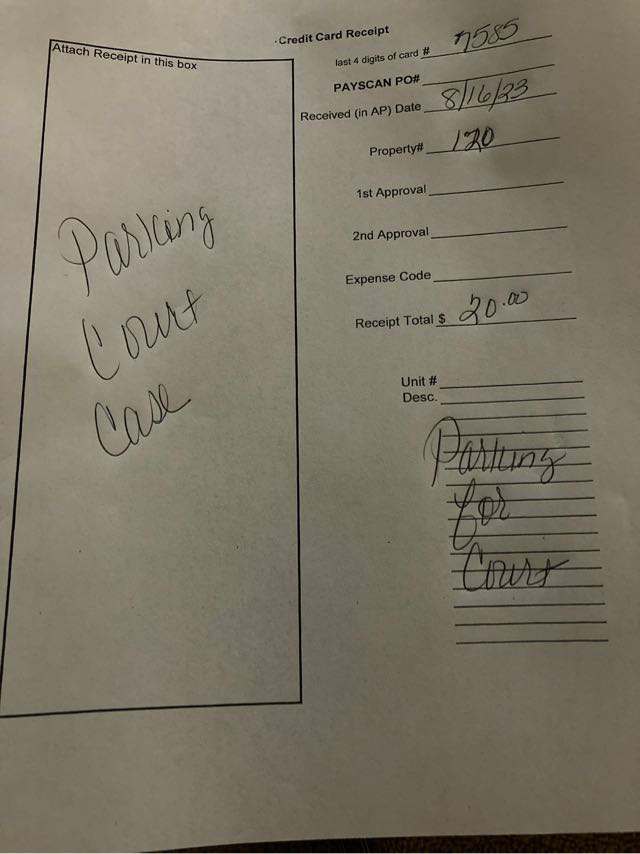 Attach Receipt in this box
Parking
Court
Case
-Credit Card Receipt
last 4 digits of card # 7585
PAYSCAN PO#
Received (in AP) Date 8/16/23
Property# 120
1st Approval
2nd Approval
Expense Code
Receipt Total $ 20.00
Unit #
Desc.
Parking
for
Court